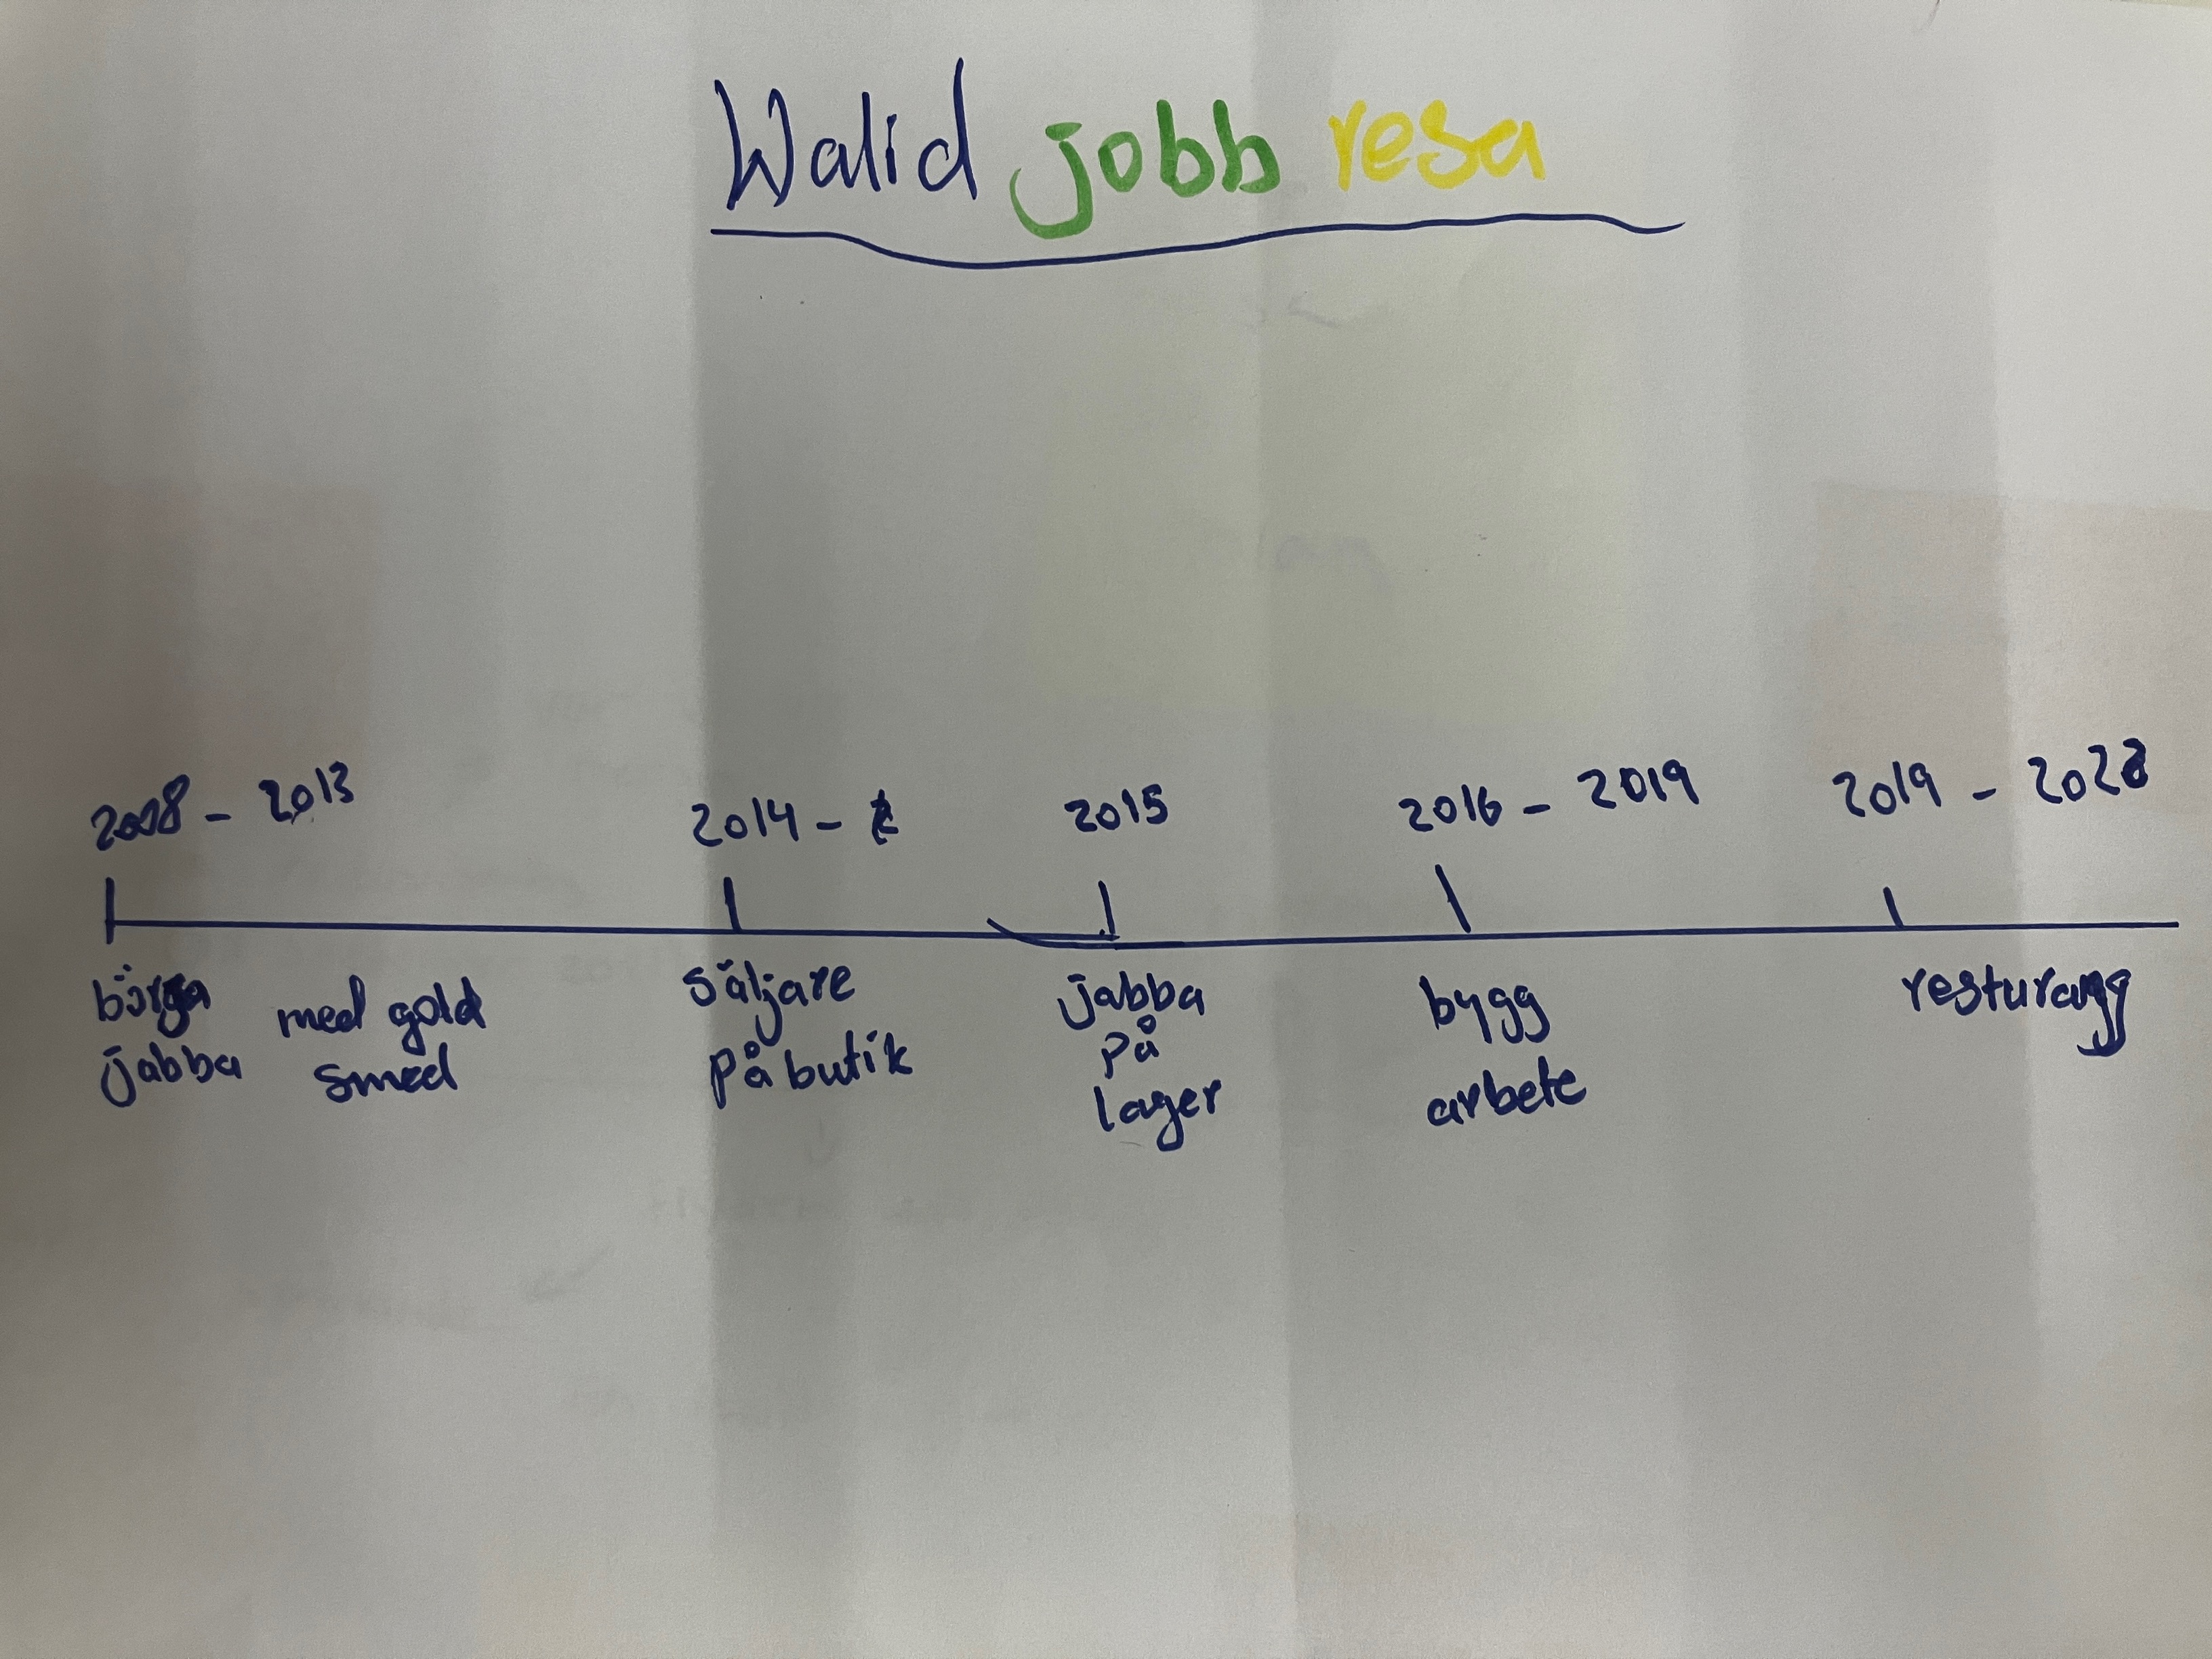 Walid jobb resa
2008 - 2013
2014 -
2015
2016 - 2019
2019 - 2022
börja
jabba
med gold
smed
säljare
på butik
jabba
på
lager
bygg
arbete
resturang